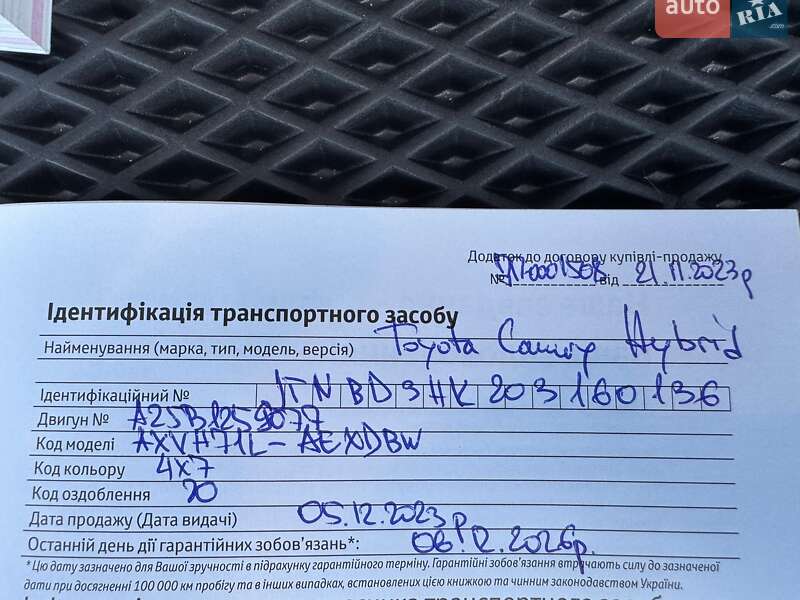 auto RIA.com
Додаток до договору купівлі-продажу
№ від 21.11.2023р
Ідентифікація транспортного засобу
Найменування (марка, тип, модель, версія) Toyota Camry Hybrid
Ідентифікаційний № JTNBD3HK203160136
Двигун № A25B1259077
Код моделі AXVH71L-AEXDBW
Код кольору 4X7
Код оздоблення 20
Дата продажу (Дата видачі) 05.12.2023р
Останній день дії гарантійних зобов'язань*: 06.12.2026р.
*Цю дату зазначено для Вашої зручності в підрахунку гарантійного терміну. Гарантійні зобов'язання втрачають силу до зазначеної
дати при досягненні 100 000 км пробігу та в інших випадках, встановлених цією книжкою та чинним законодавством України.